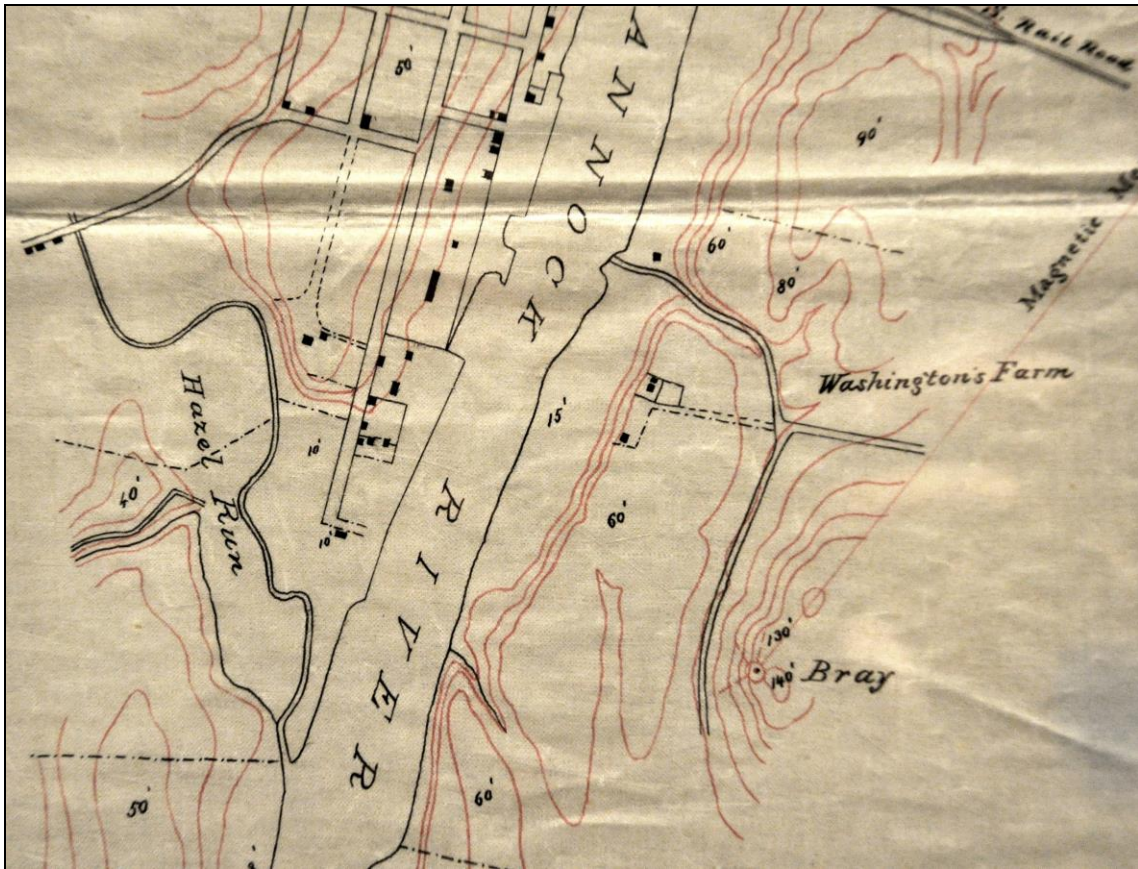 Rail Road
50'
ANNOCK
90'
Magnetic
60'
80'
Washington's Farm
15'
Hazel Run
10'
40'
60'
10'
RIVER
130'
140' Bray
60'
50'